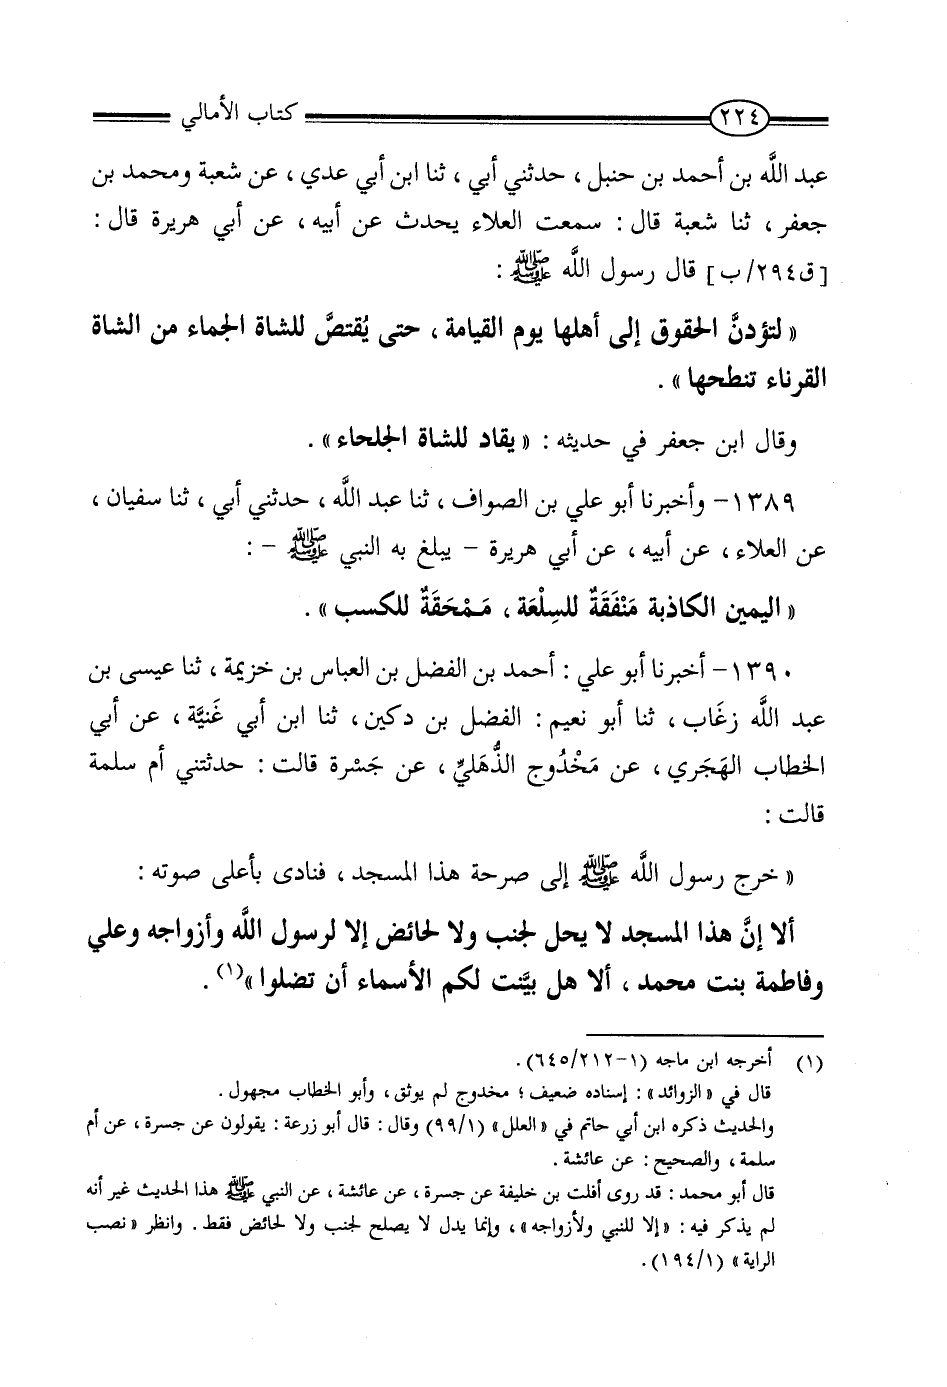 ٢٢٤ كتاب الأمالي
عبد اللَّه بن أحمد بن حنبل ، حدثني أبي ، ثنا ابن أبي عدي ، عن شعبة ومحمد بن
جعفر ، ثنا شعبة قال : سمعت العلاء يحدث عن أبيه ، عن أبي هريرة قال :
[ق٢٩٤/ب] قال رسول اللَّه ﷺ :
« لتؤدنَّ الحقوق إلى أهلها يوم القيامة ، حتى يُقتصَّ للشاة الجماء من الشاة
القرناء تنطحها » .
وقال ابن جعفر في حديثه : « يقاد للشاة الجلحاء » .
١٣٨٩- وأخبرنا أبو علي بن الصواف ، ثنا عبد اللَّه ، حدثني أبي ، ثنا سفيان ،
عن العلاء ، عن أبيه ، عن أبي هريرة - يبلغ به النبي ﷺ - :
« اليمين الكاذبة مَنْفَقَةٌ للسِلْعَة ، مَمْحَقَةٌ للكسب » .
١٣٩٠- أخبرنا أبو علي : أحمد بن الفضل بن العباس بن خزيمة ، ثنا عيسى بن
عبد اللَّه زغَاب ، ثنا أبو نعيم : الفضل بن دكين ، ثنا ابن أبي غَنيَّة ، عن أبي
الخطاب الهَجَري ، عن مَخْدُوج الذُّهَليِّ ، عن جَسْرة قالت : حدثتني أم سلمة
قالت :
« خرج رسول اللَّه ﷺ إلى صرحة هذا المسجد ، فنادى بأعلى صوته :
ألا إنَّ هذا المسجد لا يحل لجنب ولا لحائض إلا لرسول اللَّه وأزواجه وعلي
وفاطمة بنت محمد ، ألا هل بيَّنت لكم الأسماء أن تضلوا »(١) .
(١) أخرجه ابن ماجه (١-٦٤٥/٢١٢) .
قال في « الزوائد » : إسناده ضعيف ؛ مخدوج لم يوثق ، وأبو الخطاب مجهول .
والحديث ذكره ابن أبي حاتم في « العلل » (٩٩/١) وقال : قال أبو زرعة : يقولون عن جسرة ، عن أم
سلمة ، والصحيح : عن عائشة .
قال أبو محمد : قد روى أفلت بن خليفة عن جسرة ، عن عائشة ، عن النبي ﷺ هذا الحديث غير أنه
لم يذكر فيه : « إلا للنبي ولأزواجه » ، وإنما يدل لا يصلح لجنب ولا لحائض فقط . وانظر « نصب
الراية » (١٩٤/١) .